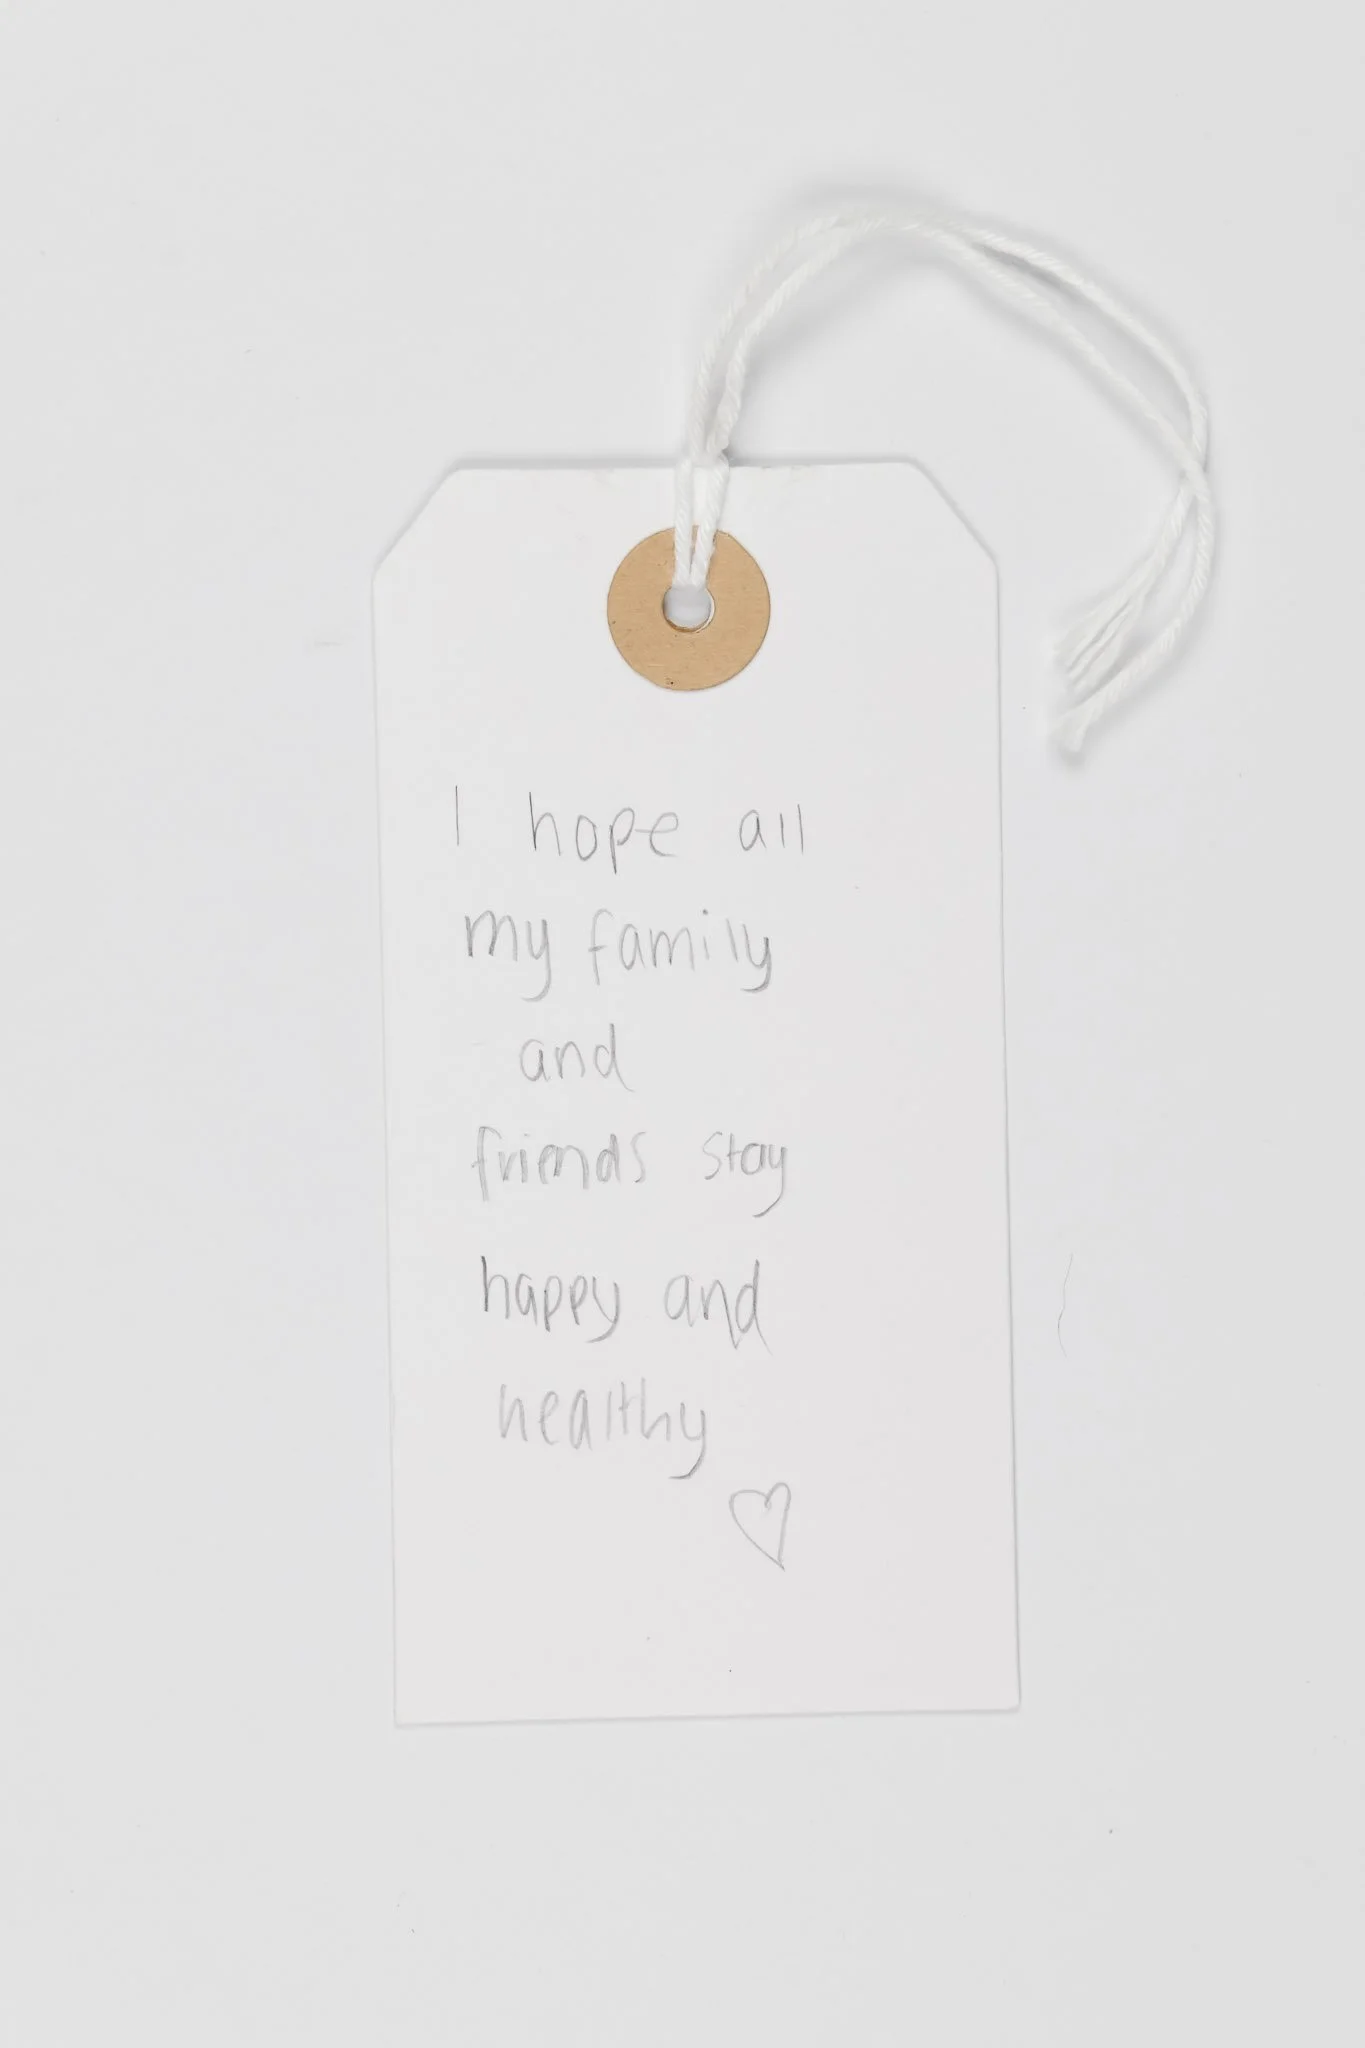 I hope all
my family
and
friends stay
happy and
healthy
♡